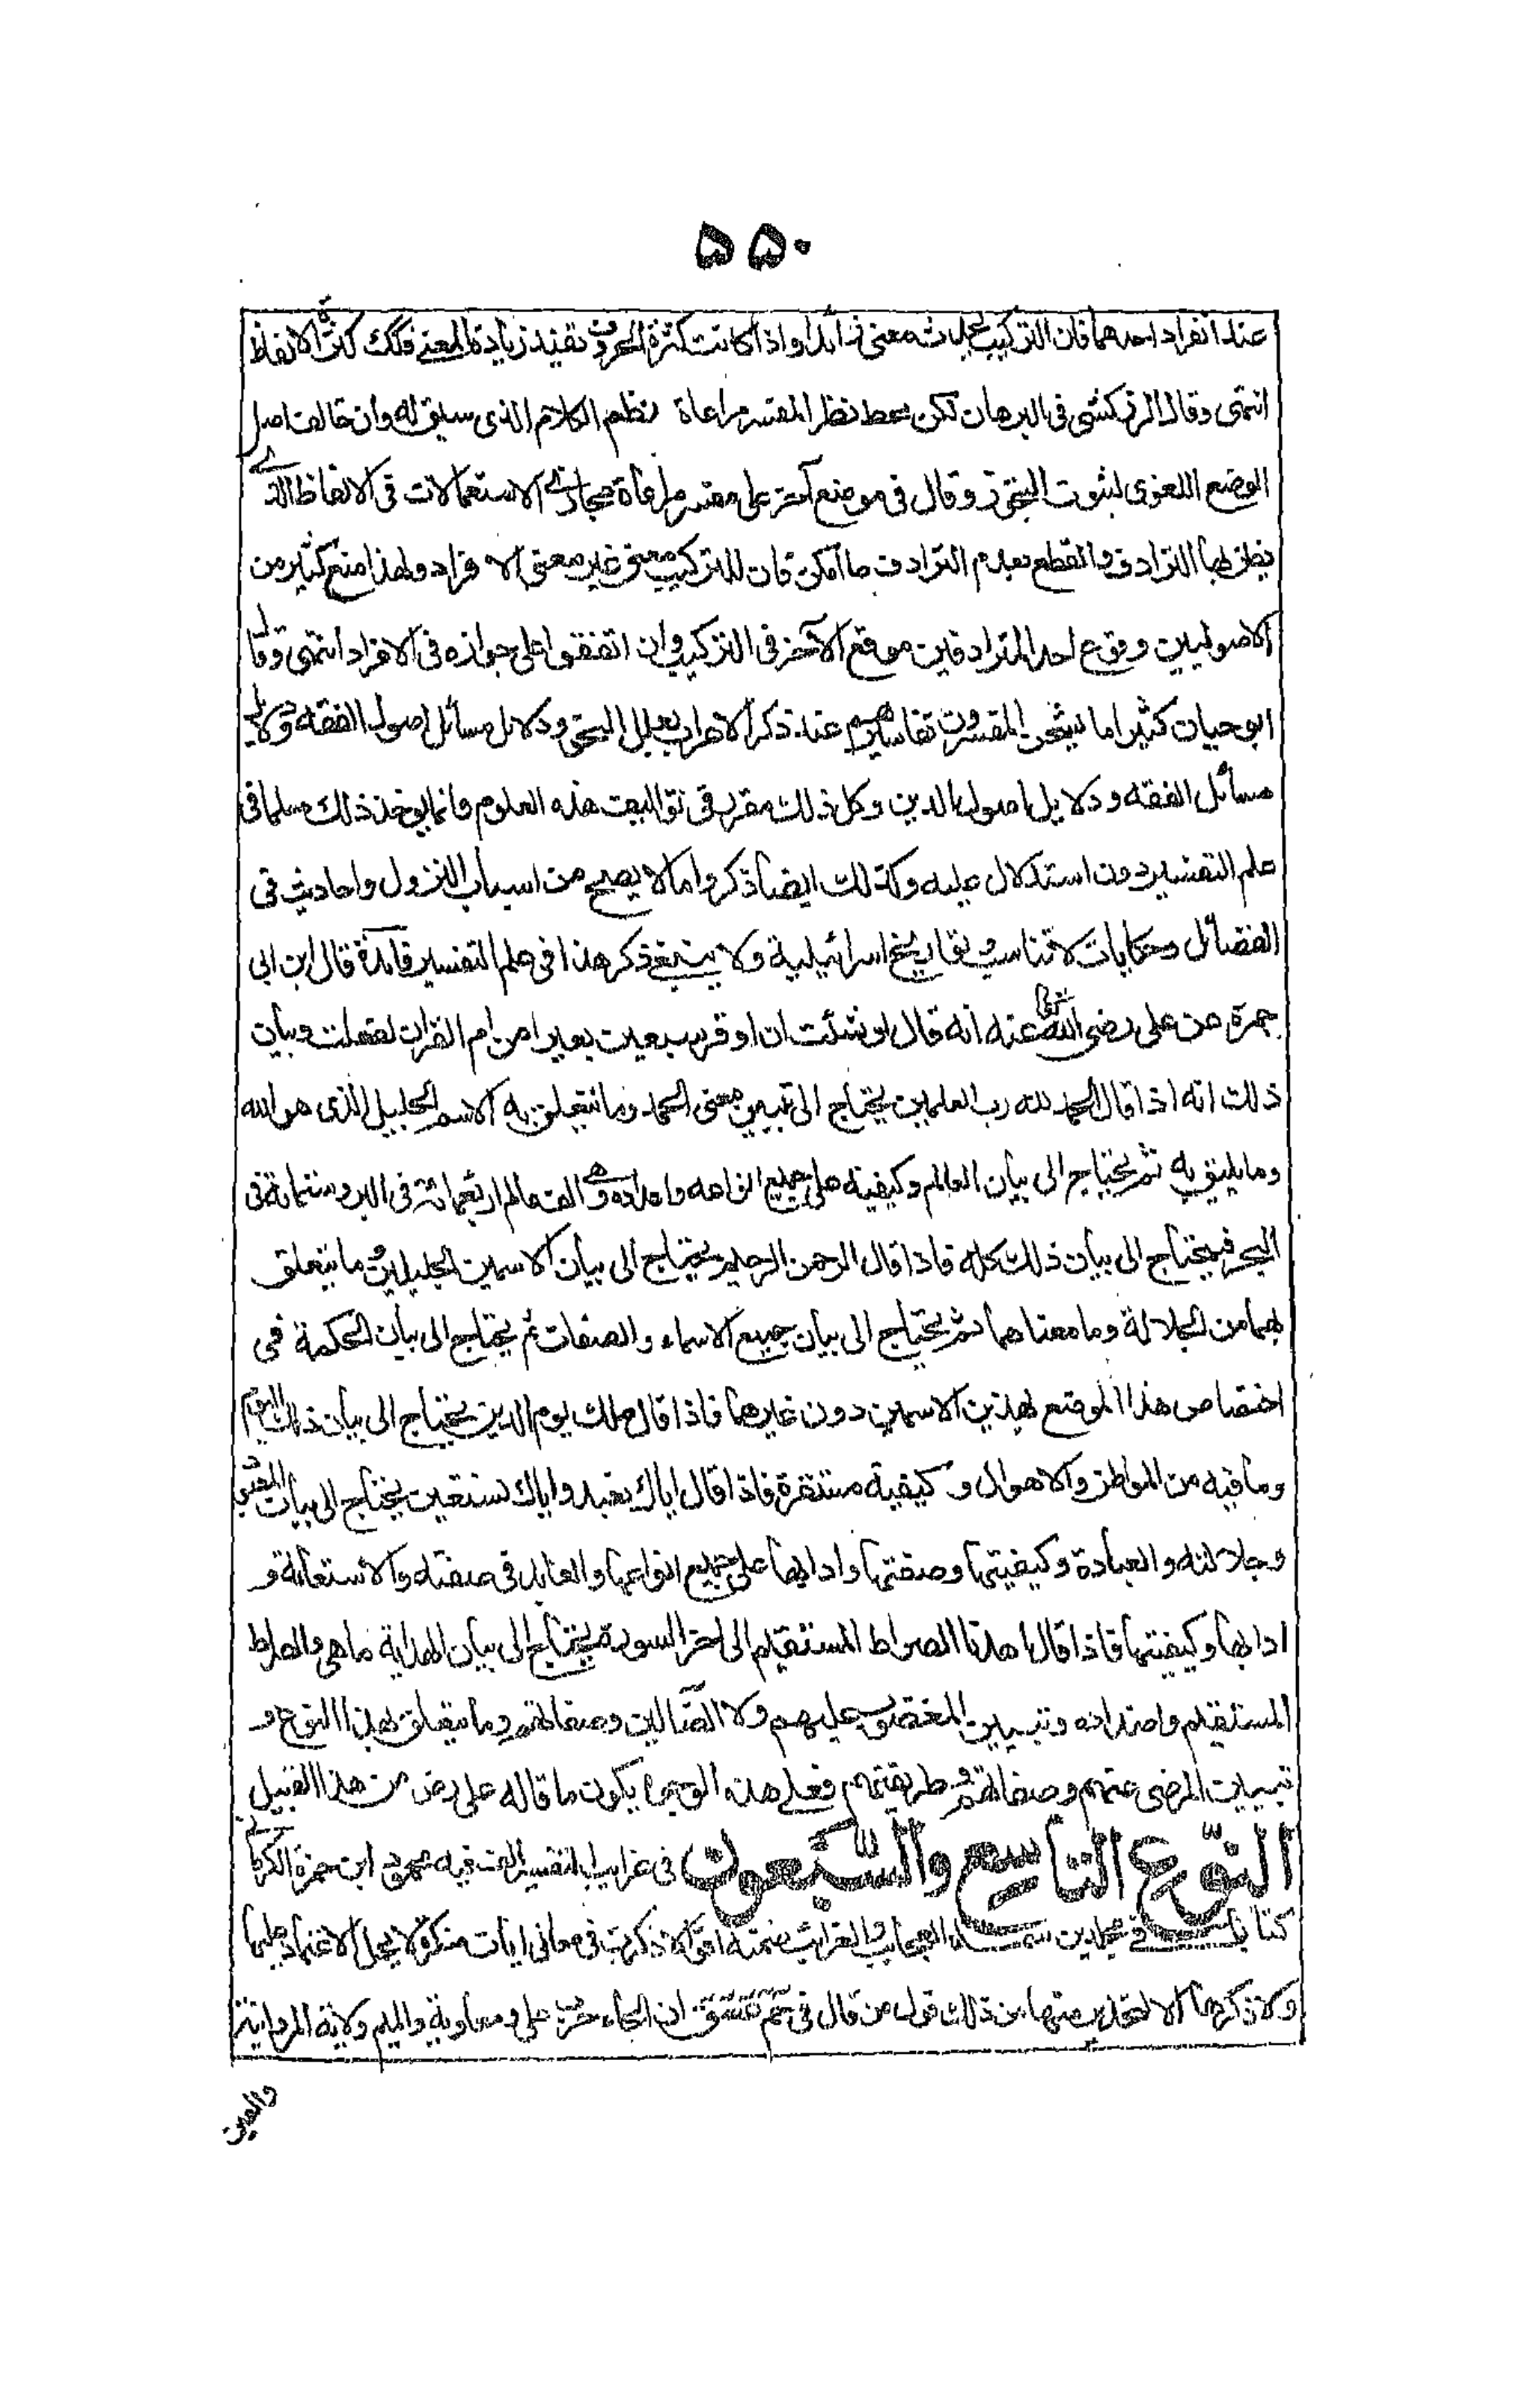 ۵۵۰
عند انفراد احدهما فان التركيب يحدث معنى زائدا واذا كانت كثرة الحروف تفيد زيادة المعنى فكذلك كثرة الالفاظ
انتهى وقال الزركشى فى البرهان ليكن محط نظر المفسر مراعاة نظم الكلام الذى سيق له وان خالف اصل
الوضع اللغوى لثبوت التجوز وقال فى موضع آخر على مفسر مراعاة مجازى الاستعمالات فى الالفاظ التى
يظن بها الترادف والقطع بعدم الترادف ما امكن فان للتركيب معنى غير معنى الافراد ولهذا منع كثير من
الاصوليين وقوع احد المترادفين موقع الآخر فى التركيب وان اتفقوا على جوازه فى الافراد انتهى وقال
ابو حيان كثيرا ما يشحن المفسرون تفاسيرهم عند ذكر الاعراب بعلل النحو ودلائل مسائل اصول الفقه ودلائل
مسائل الفقه ودلايل اصول الدين وكل ذلك مقرر فى تواليف هذه العلوم وانما يوخذ ذلك مسلما فى
علم التفسير دون استدلال عليه وكذلك ايضا ذكروا ما لا يصح من اسباب النزول واحاديث فى
الفضائل وحكايات لا تناسب وتواريخ اسرائيلية ولا ينبغى ذكر هذا فى علم التفسير فائدة قال ابن ابى
جمرة عن على رضى الله تعالى عنه انه قال لو شئت ان اوقر سبعين بعيرا من ام القران لفعلت وبيان
ذلك انه اذا قال الحمد لله رب العلمين يحتاج الى تبيين معنى الحمد وما يتعلق به الاسم الجليل الذى هو الله
وما يليق به ثم يحتاج الى بيان العالم وكيفيته على جميع انواعه واعداده وهى الف عالم اربعمائة فى البر وستمائة فى
البحر فيحتاج الى بيان ذلك كله فاذا قال الرحمن الرحيم يحتاج الى بيان الاسمين الجليلين وما يتعلق
بهما من الجلالة وما معناهما ثم يحتاج الى بيان جميع الاسماء والصفات ثم يحتاج الى بيان الحكمة فى
اختصاص هذا الموضع لهذين الاسمين دون غيرهما فاذا قال ملك يوم الدين يحتاج الى بيان ذلك اليوم
وما فيه من المواطن والاهوال وكيفية مستقرة فاذا قال اياك نعبد واياك نستعين يحتاج الى بيان المعبود
وجلالته والعبادة وكيفيتها وصفتها وادابها على جميع انواعها والعابد فى صفته والاستعانة و
ادابها وكيفيتها فاذا قال اهدنا الصراط المستقيم الى اخر السورة يحتاج الى بيان الهداية ما هى والصراط
المستقيم واضداده وتبيين المغضوب عليهم ولا الضالين وصفاتهم وما يتعلق بهذا النوع و
تبيين المرضى عنهم وصفاتهم وطريقتهم فعلى هذه الوجوه يكون ما قاله على رض من هذا القبيل
النوع التاسع والسبعون فى غرايب التفسير الف فيه محمود ابن حمزة الكرمانى
كتابا فى مجلدين سماه العجايب والغرائب ضمنه اقوالا ذكرت فى معانى ايات منكرة لا يحل الاعتماد عليها
ولا ذكرها الا للتحذير منها من ذلك قول من قال فى حم عسق ان الحاء حرب على ومعاوية والميم ولاية المروانية
والعين